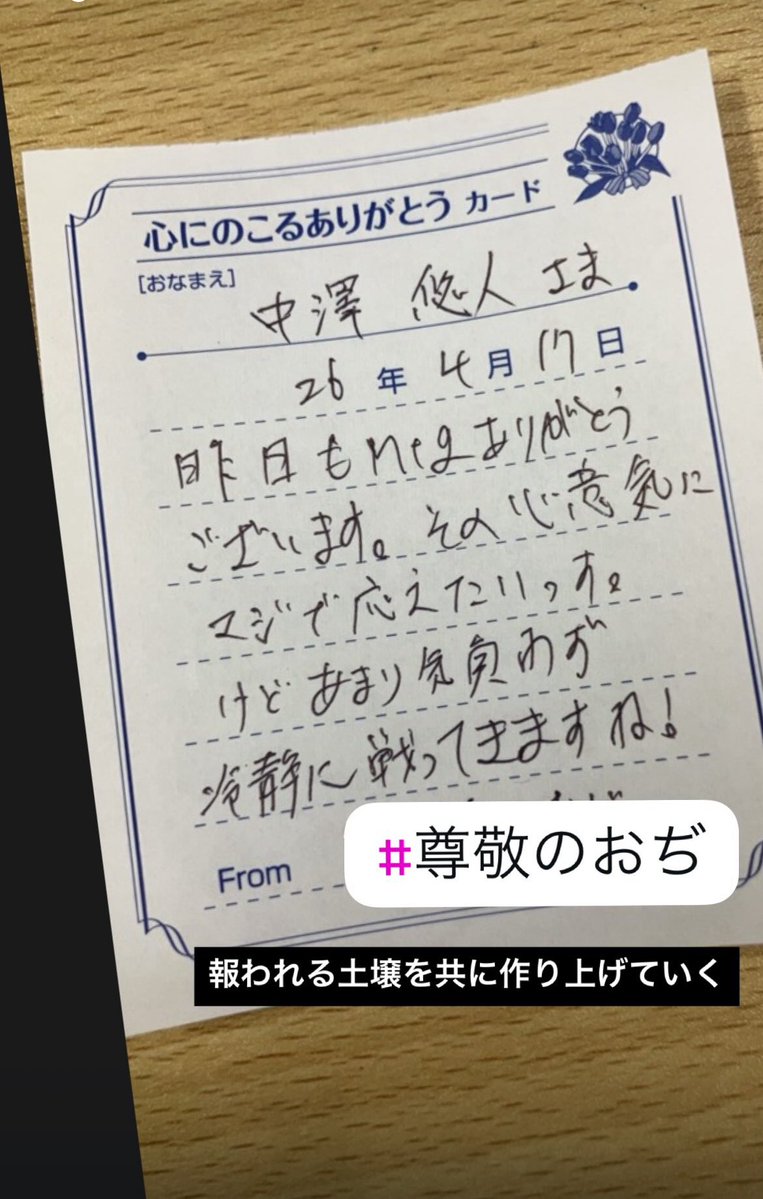 心にのこるありがとう カード
[おなまえ]
中澤 悠人 さま
26 年 4 月 17 日
昨日もMtgありがとう
ございます。その心意気に
マジで応えたいっす。
けどあまり気負わず
冷静に戦ってきますね!
From
#尊敬のおぢ
報われる土壌を共に作り上げていく